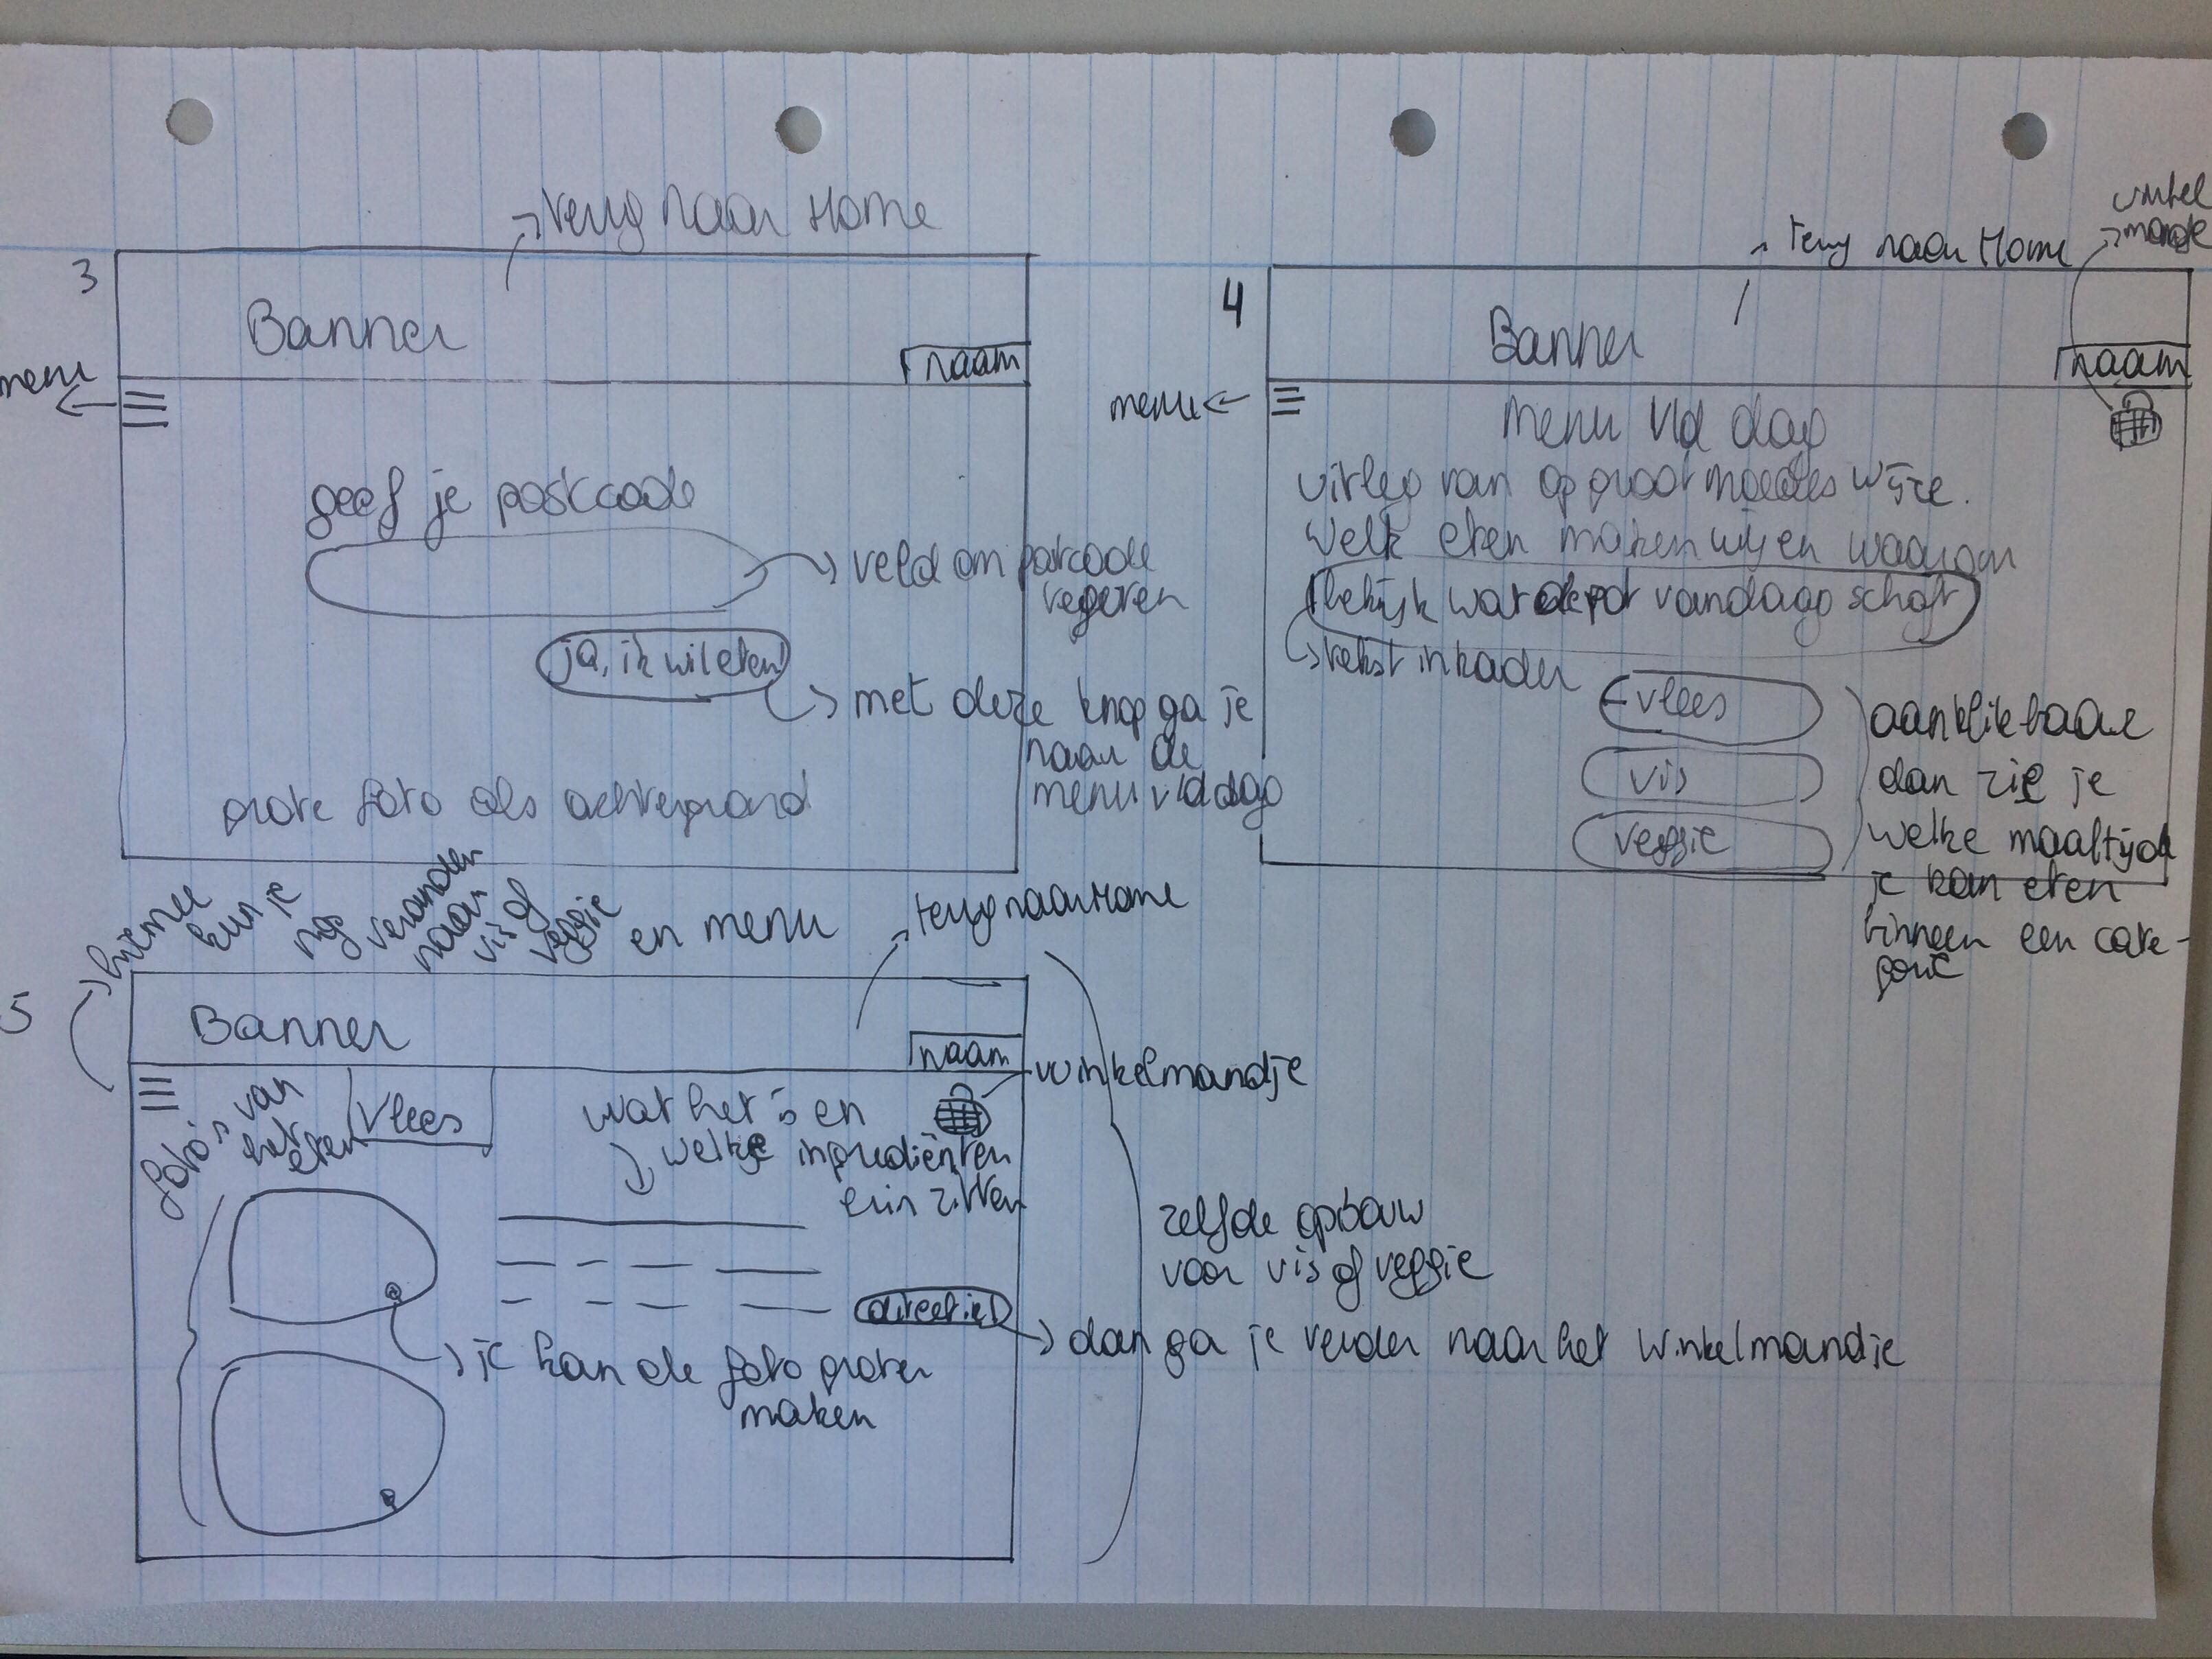 3
terug naar Home
Banner
naam
menu
geef je postcode
veld om postcode
ja, ik wil eten!
met deze knop ga je
naar de
menu v/d dag
grote foto als achtergrond
4
terug naar Home
winkel
mandje
Banner
naam
menu
menu v/d dag
uitleg van op grootmoeders wijze.
Welk eten maken wij en waarom
bekijk wat de pot vandaag schaft
tekst in kader
vlees
vis
veggie
aanklikbaar
dan zie je
welke maaltijd
je kan eten
binneen een cate-
gorie
5
hiermee
kun je
nog
veranderen
naar
vis of
veggie
en menu
terug naar Home
Banner
naam
winkelmandje
foto's van
het
eten
Vlees
wat het is en
welke ingrediënten
erin zitten
je kan de foto groter
maken
dan ga je verder naar het winkelmandje
zelfde opbouw
voor vis of veggie